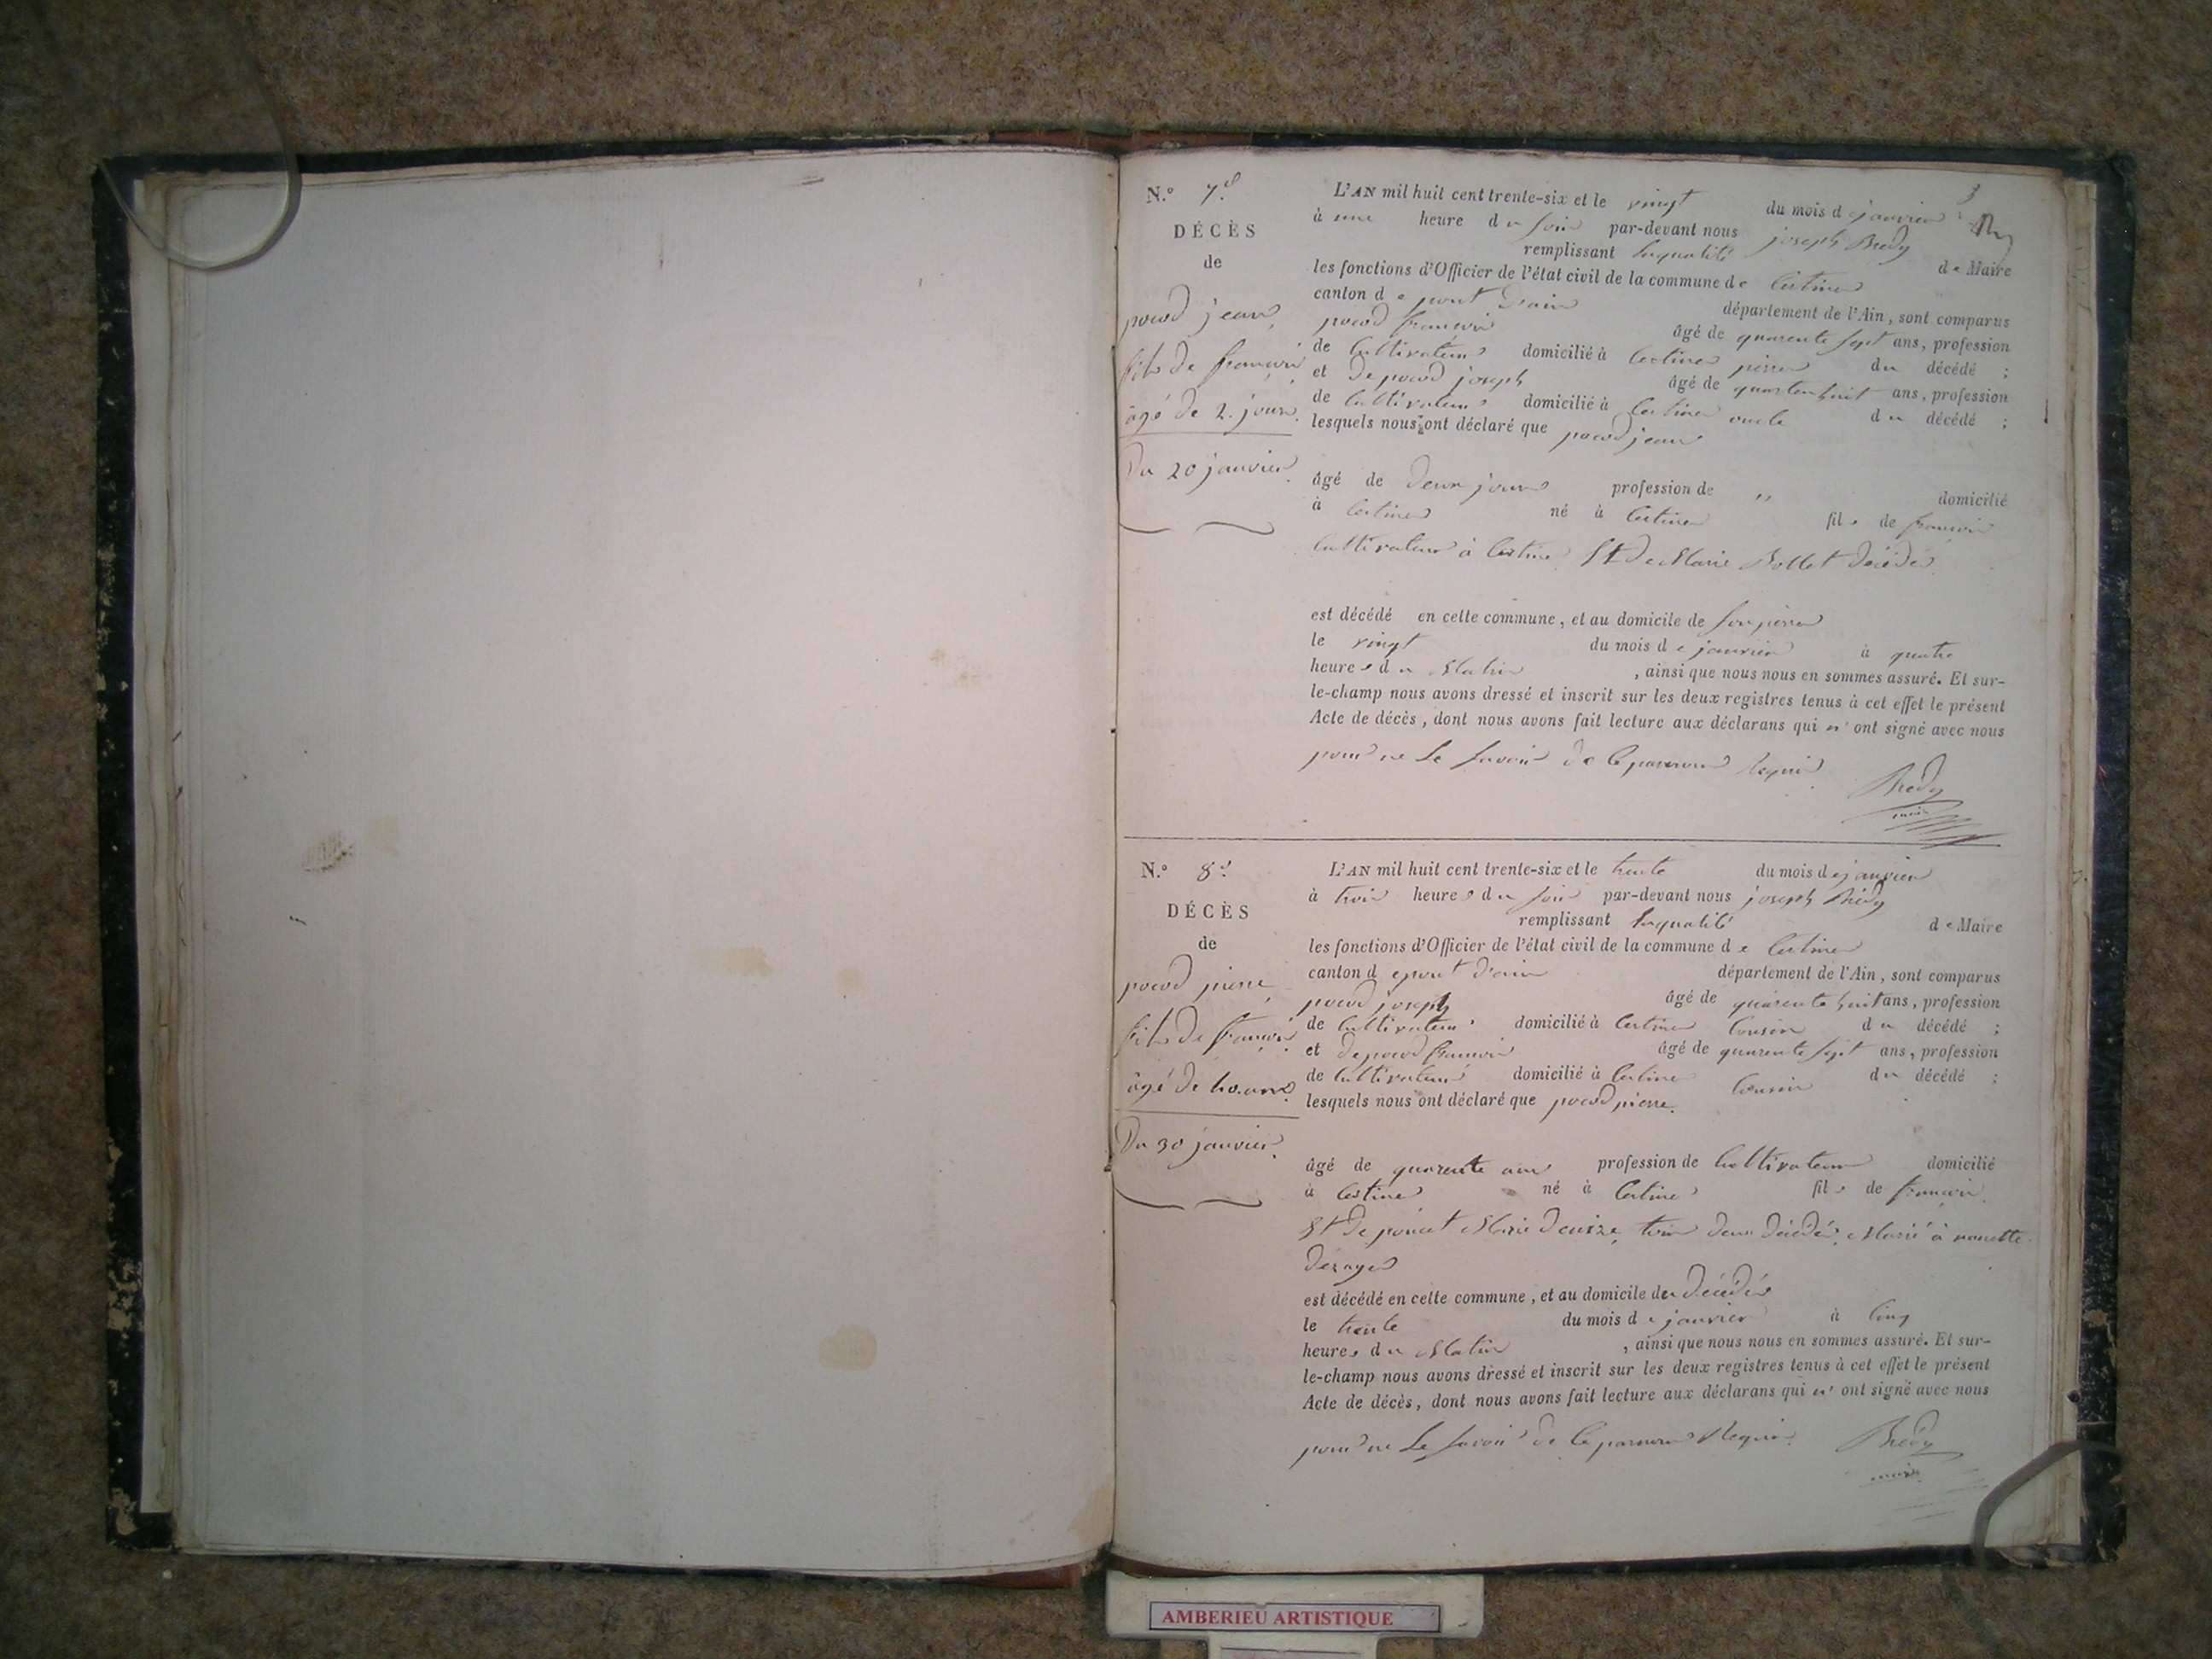 3
N.º 7.e
DÉCÈS
de
pocod jean,
fils de françois
âgé de 2. jours.
Du 20 janvier.
L'AN mil huit cent trente-six et le vingt du mois de janvier
à une heure du soir par-devant nous joseph Bredy
remplissant laqualité de Maire
les fonctions d'Officier de l'état civil de la commune de Certines
canton de pont d'ain département de l'Ain, sont comparus
pocod françois âgé de quarente sept ans, profession
de Cultivateur domicilié à Certines perre du décédé ;
et De pocod joseph âgé de quarten huit ans, profession
de Cultivateur domicilié à Certines oncle du décédé ;
lesquels nous ont déclaré que pocod jean
âgé de deux jours profession de " domicilié
à Certines né à Certines fils de françois
Cultivateur à Certines Et De Marie Bollet décédé
est décédé en cette commune, et au domicile de son perre
le vingt du mois de janvier à quatre
heures du Matin , ainsi que nous nous en sommes assuré. Et sur-
le-champ nous avons dressé et inscrit sur les deux registres tenus à cet effet le présent
Acte de décès, dont nous avons fait lecture aux déclarans qui n'ont signé avec nous
pour ne Le savoir de Ce Requis
Bredy
N.º 8.e
DÉCÈS
de
pocod pierre
fils de françois
âgé de 40. ans.
Du 30 janvier.
L'AN mil huit cent trente-six et le trente du mois de janvier
à trois heures du soir par-devant nous joseph Bredy
remplissant laqualité de Maire
les fonctions d'Officier de l'état civil de la commune de Certines
canton de pont d'ain département de l'Ain, sont comparus
pocod joseph âgé de quarente huit ans, profession
de Cultivateur domicilié à Certines Cousin du décédé ;
et de pocod françois âgé de quarente sept ans, profession
de Cultivateur domicilié à Certines Cousin du décédé ;
lesquels nous ont déclaré que pocod pierre.
âgé de quarente ans profession de Cultivateur domicilié
à Certines né à Certines fils de françois
Et De poncet Marie tous deux décédés, Marié à
est décédé en cette commune, et au domicile du décédé
le trente du mois de janvier à Cinq
heures du Matin , ainsi que nous nous en sommes assuré. Et sur-
le-champ nous avons dressé et inscrit sur les deux registres tenus à cet effet le présent
Acte de décès, dont nous avons fait lecture aux déclarans qui n'ont signé avec nous
pour ne Le savoir de Ce Requis
Bredy
AMBERIEU ARTISTIQUE